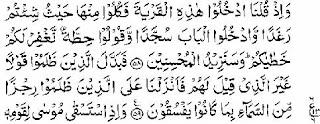 وَاِذْ قُلْنَا ادْخُلُوْا هٰذِهِ الْقَرْيَةَ فَكُلُوْا مِنْهَا حَيْثُ شِئْتُمْ
رَغَدًا وَّادْخُلُوا الْبَابَ سُجَّدًا وَّقُوْلُوْا حِطَّةٌ نَّغْفِرْ لَكُمْ
خَطٰيٰكُمْ ؕ وَسَنَزِيْدُ الْمُحْسِنِيْنَ ﴿۵۸﴾ فَبَدَّلَ الَّذِيْنَ ظَلَمُوْا قَوْلًا
غَيْرَ الَّذِيْ قِيْلَ لَهُمْ فَاَنْزَلْنَا عَلَى الَّذِيْنَ ظَلَمُوْا رِجْزًا
مِّنَ السَّمَآءِ بِمَا كَانُوْا يَفْسُقُوْنَ ﴿۵۹﴾ وَاِذِ اسْتَسْقٰى مُوْسٰى لِقَوْمِهٖ